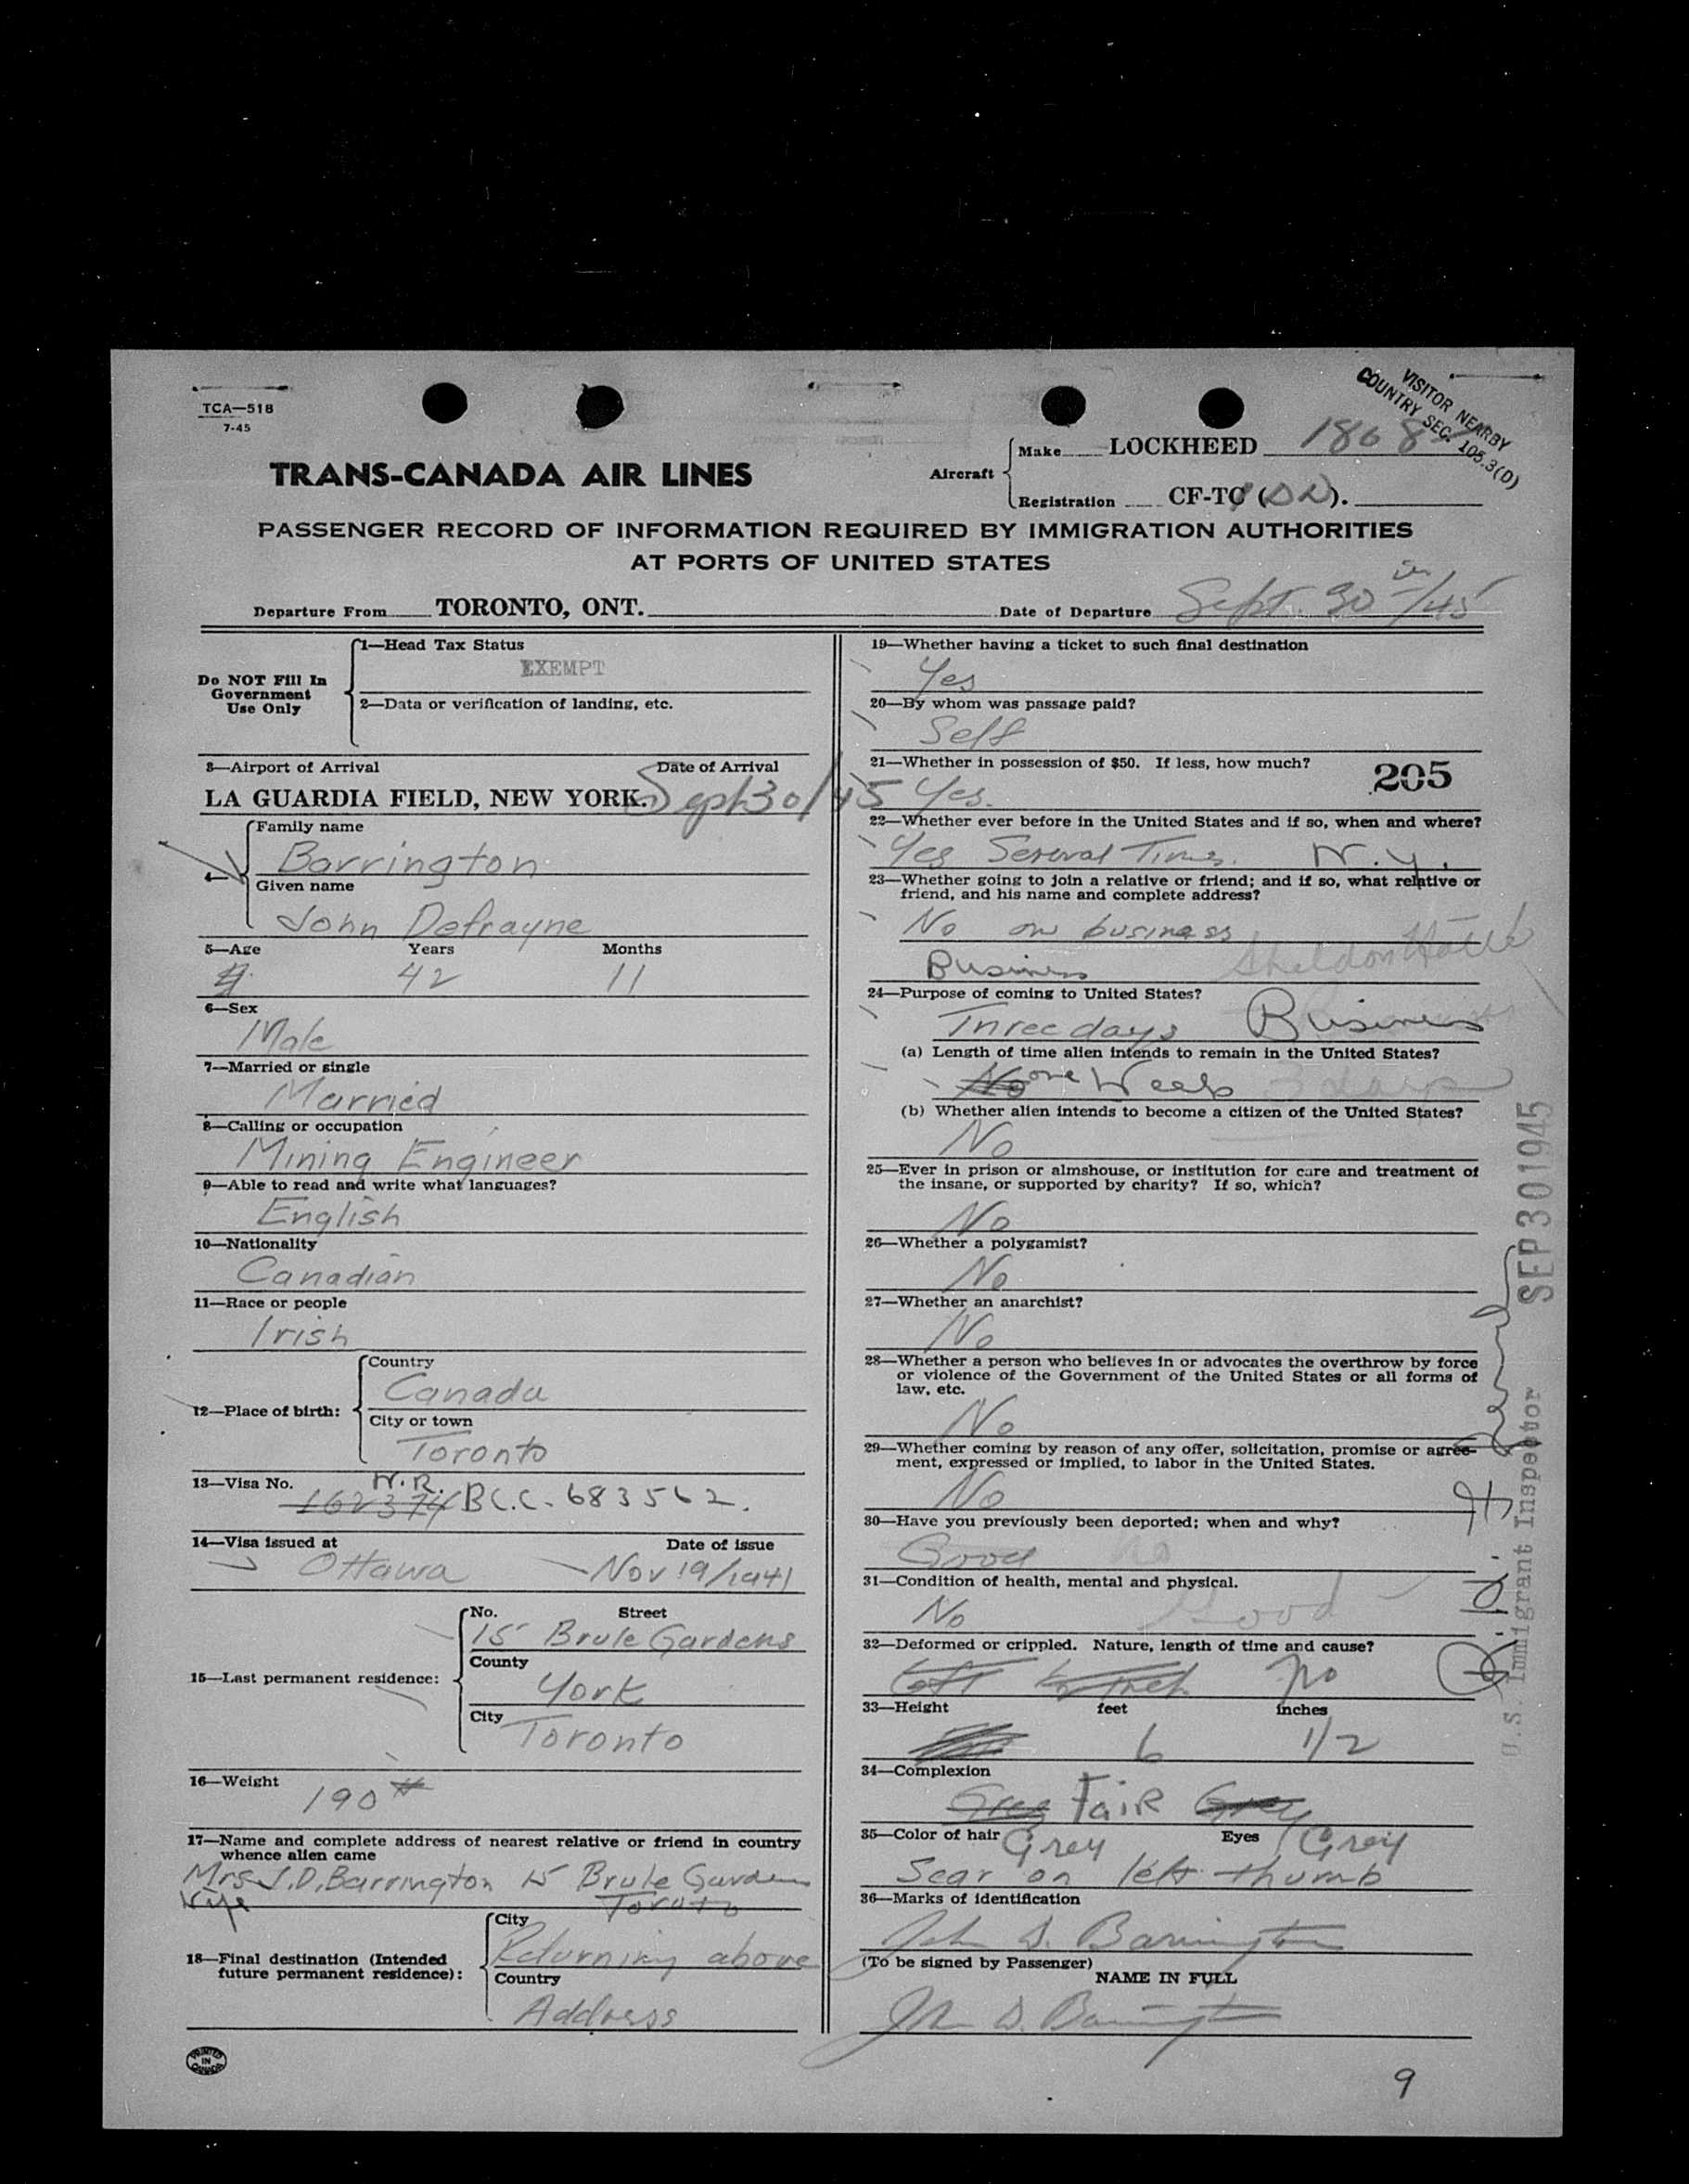 TCA—518
7-45
VISITOR NEARBY
COUNTRY SEC. 105.3(D)
TRANS-CANADA AIR LINES
Aircraft
Make LOCKHEED
Registration CF-TC
PASSENGER RECORD OF INFORMATION REQUIRED BY IMMIGRATION AUTHORITIES
AT PORTS OF UNITED STATES
Departure From TORONTO, ONT. Date of Departure Sept. 30/45
Do NOT Fill In
Government
Use Only
1—Head Tax Status
EXEMPT
2—Data or verification of landing, etc.
3—Airport of Arrival Date of Arrival
LA GUARDIA FIELD, NEW YORK. Sept 30/45
4—
Family name
Barrington
Given name
John Defrayne
5—Age Years Months
42 11
6—Sex
Male
7—Married or single
Married
8—Calling or occupation
Mining Engineer
9—Able to read and write what languages?
English
10—Nationality
Canadian
11—Race or people
Irish
12—Place of birth:
Country
Canada
City or town
Toronto
13—Visa No. N.R.
162374 B.C.C. 683562.
14—Visa issued at Date of issue
Ottawa Nov 19/1941
15—Last permanent residence:
No. Street
15 Brule Gardens
County
York
City
Toronto
16—Weight
190 #
17—Name and complete address of nearest relative or friend in country
whence alien came
Mrs J.D. Barrington 15 Brule Gardens
Wife Toroto
18—Final destination (Intended
future permanent residence):
City
Returning above
Country
Address
PRINTED
IN
CANADA
19—Whether having a ticket to such final destination
Yes
20—By whom was passage paid?
Self
21—Whether in possession of $50. If less, how much?
205
Yes.
22—Whether ever before in the United States and if so, when and where?
Yes Several Times. N.Y.
23—Whether going to join a relative or friend; and if so, what relative or
friend, and his name and complete address?
No on business
Business Sheldon Hotel
24—Purpose of coming to United States?
Three days Business
(a) Length of time alien intends to remain in the United States?
No one Week 3 days
(b) Whether alien intends to become a citizen of the United States?
No
25—Ever in prison or almshouse, or institution for care and treatment of
the insane, or supported by charity? If so, which?
No
26—Whether a polygamist?
No
27—Whether an anarchist?
No
28—Whether a person who believes in or advocates the overthrow by force
or violence of the Government of the United States or all forms of
law, etc.
No
29—Whether coming by reason of any offer, solicitation, promise or agree-
ment, expressed or implied, to labor in the United States.
No
30—Have you previously been deported; when and why?
Good no
31—Condition of health, mental and physical.
No Good
32—Deformed or crippled. Nature, length of time and cause?
no
33—Height feet inches
6 1/2
34—Complexion
Grey Fair Grey
35—Color of hair Grey Eyes Grey
Scar on left thumb
36—Marks of identification
John D. Barrington
(To be signed by Passenger)
NAME IN FULL
John D. Barrington
SEP 30 1945
U.S. Immigrant Inspector
9